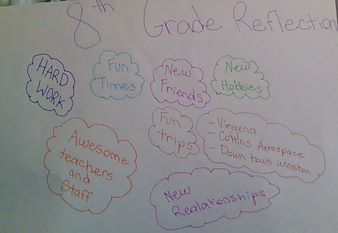 8th Grade Reflection
HARD
WORK
Fun
Times
New
Friends
New
Hobbies
Awesome
teachers
and
Staff
Fun
trips
- Virgena
- Collins Aerospace
- Down town winston
New
Realationships